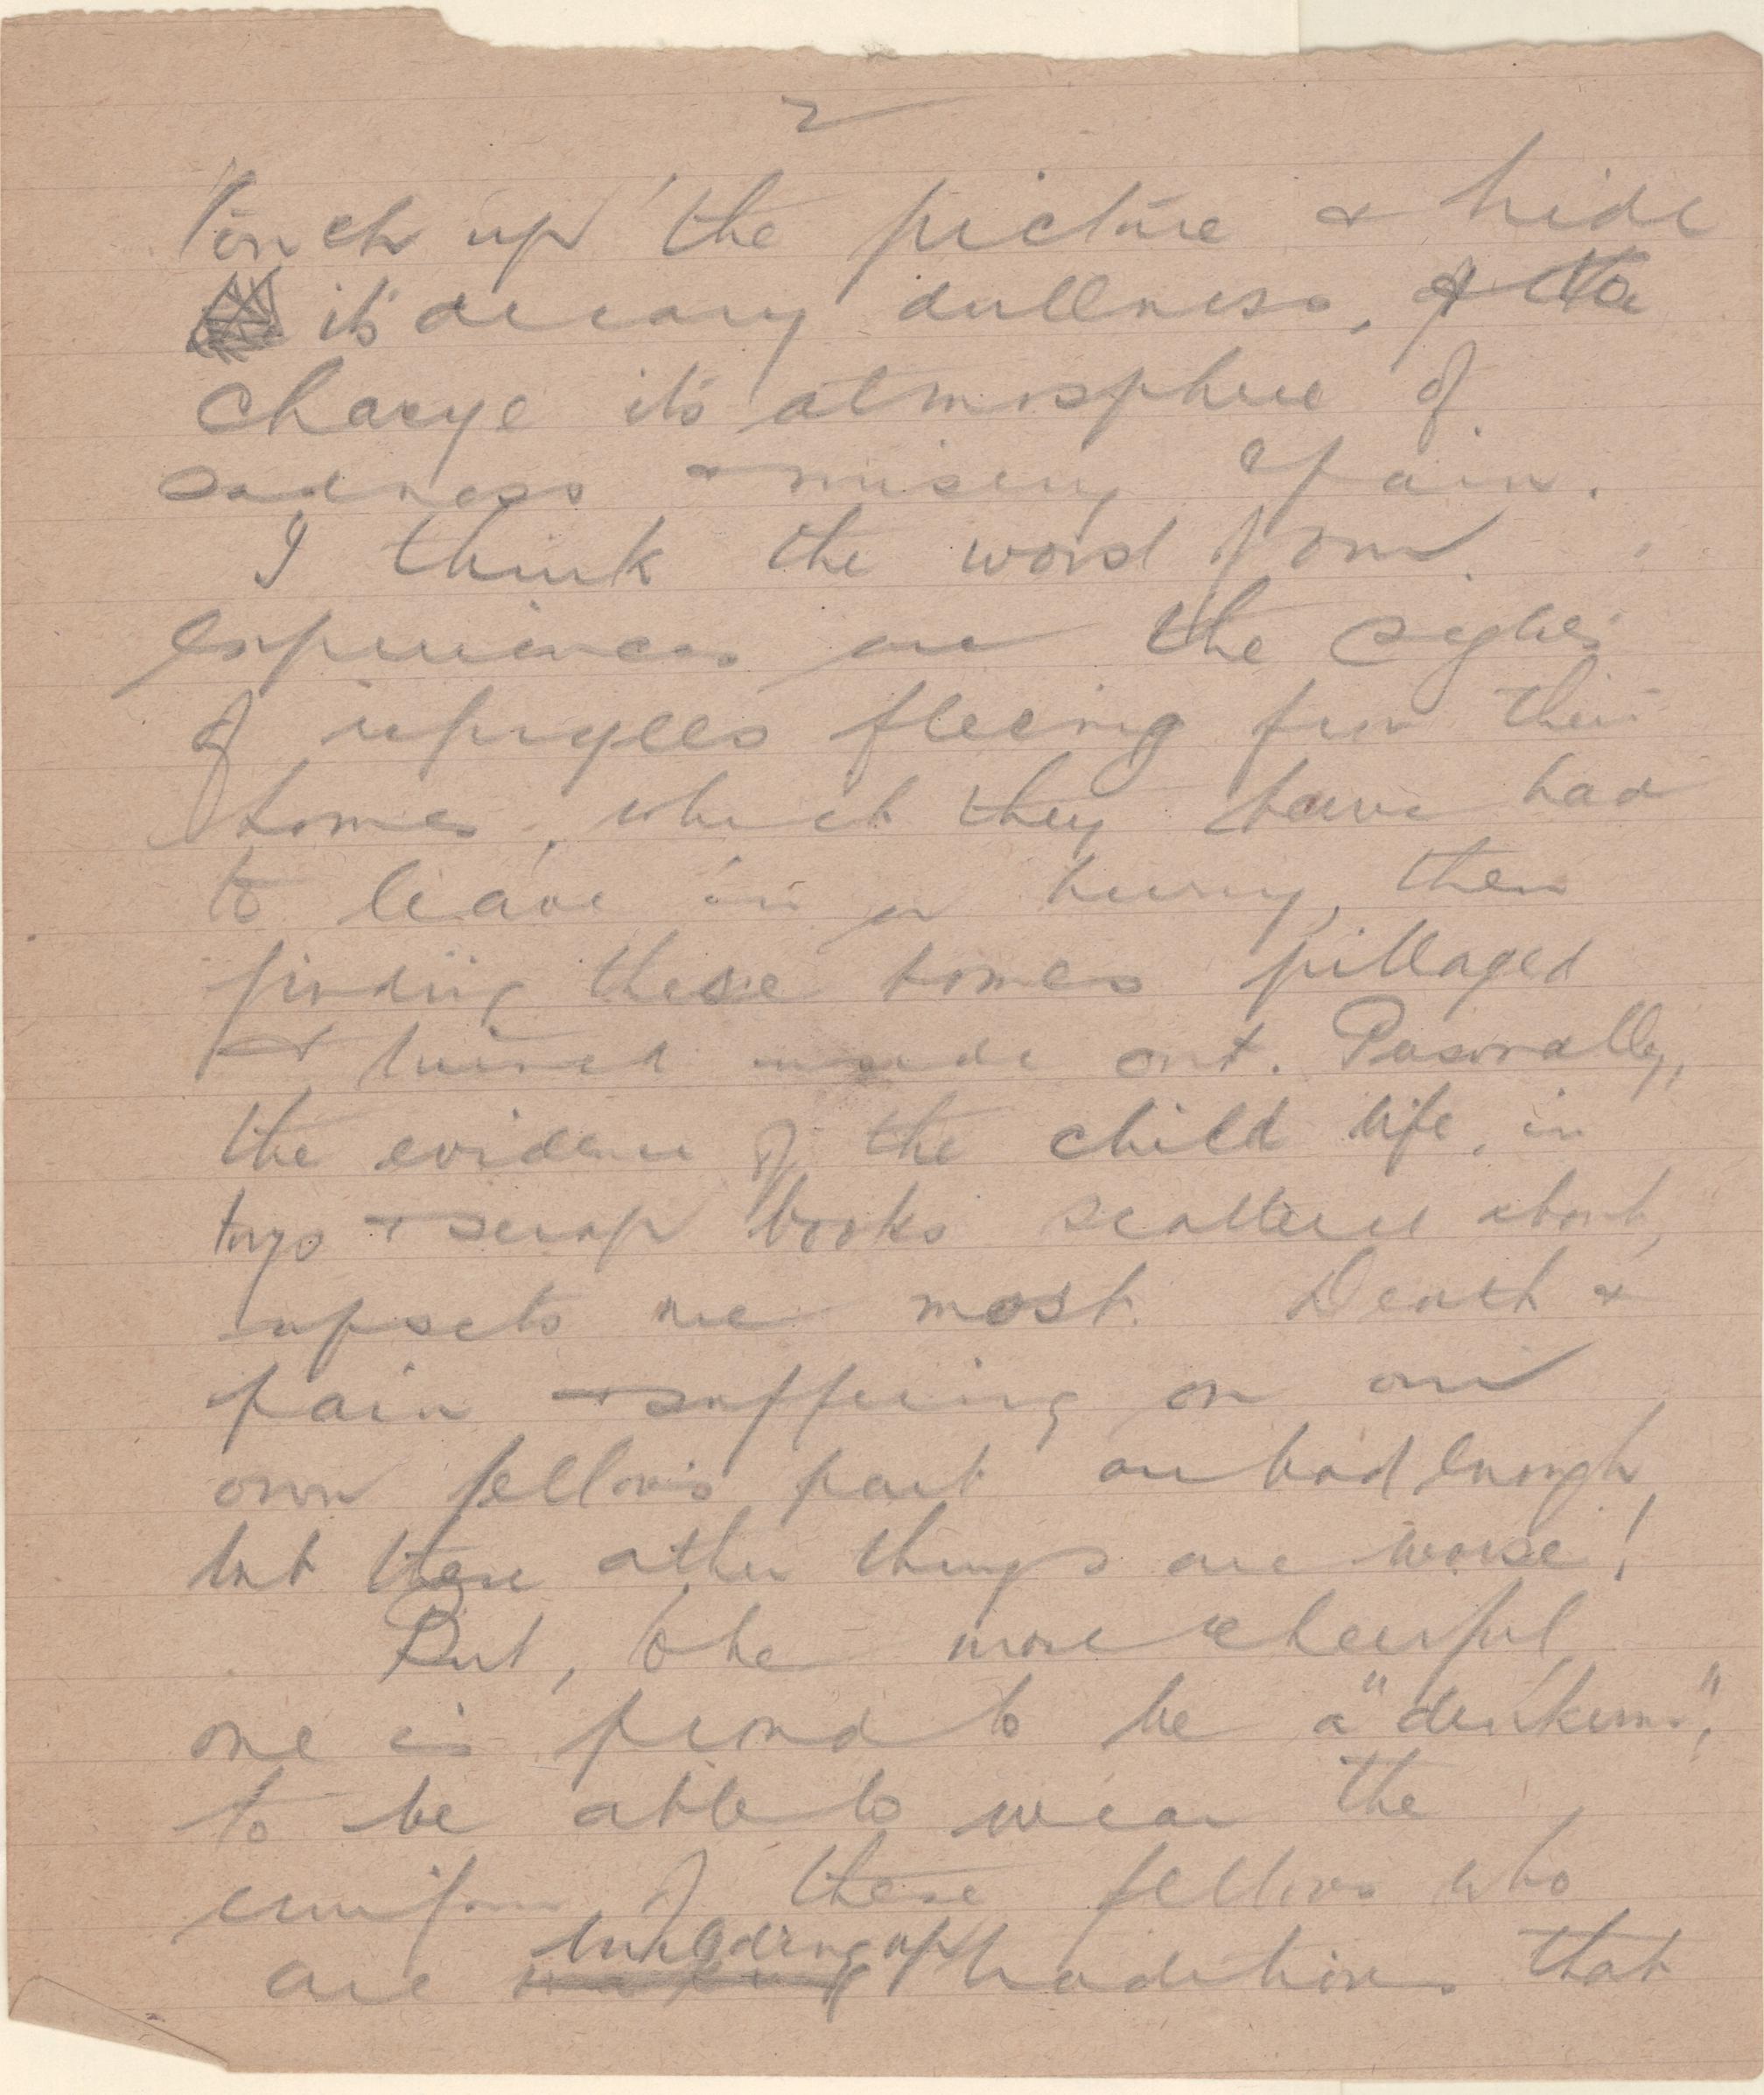 2
touch up the picture & hide
its dreary dullness, of the
charge its atmosphere of
sadness & misery & pain.
I think the worst of our
experiences are the sights
of refugees fleeing from their
homes, which they have had
to leave in a hurry, then
finding these homes pillaged
& turned inside out. Personally,
the evidence of the child life, in
toys & scrap books scattered about,
upsets me most. Death &
pain & suffering on our
own fellows part are bad enough
but these other things are worse!
But, to be more cheerful,
one is proud to be a "dinkum",
to be able to wear the
uniform of these fellows who
building up
are making traditions that